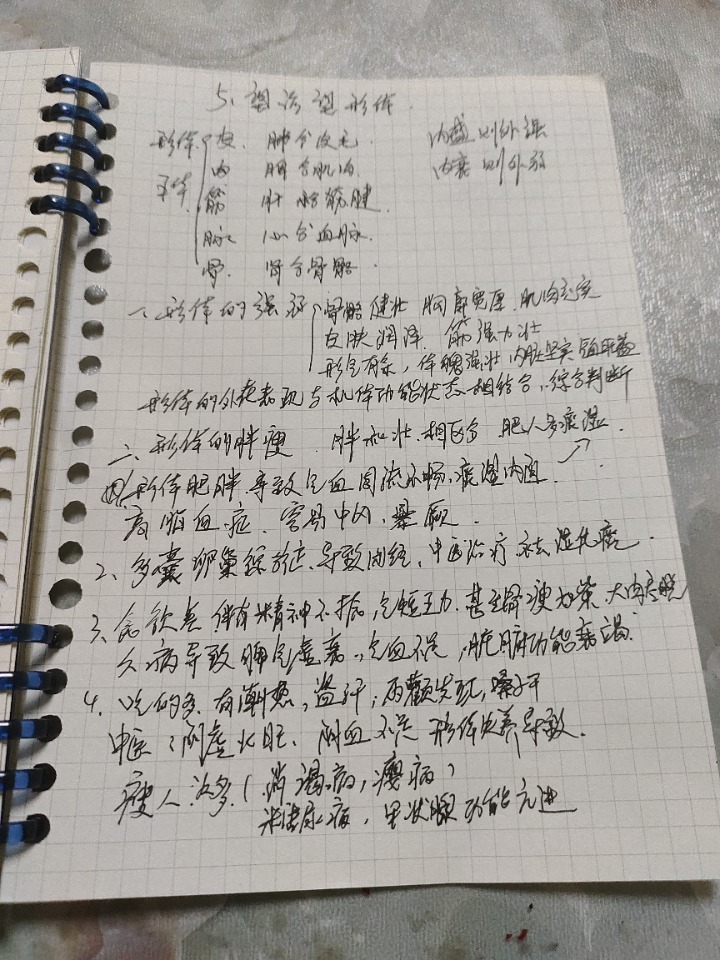 5、望诊望形体.
形体 皮. 肺合皮毛. 内盛则外强
肉 脾合肌肉. 内衰则外弱
五体 筋 肝合筋腱.
脉 心合血脉.
骨. 肾合骨骼.
一、形体的强弱 骨骼健壮 胸廓宽厚 肌肉充实
皮肤润泽 筋强力壮
形气有余, 体魄强壮, 内脏坚实
形体的外在表现与机体功能状态相结合, 综合判断
二、形体的胖瘦. 胖和壮.相区分 肥人多痰湿.
形体肥胖.导致气血周流不畅,痰湿内困.
高脂血症. 容易中风,暴厥.
2、多囊卵巢综合征.导致闭经.中医治疗 祛湿化痰.
3、食饮差 伴有精神不振,气短乏力.甚至骨瘦如柴 大肉尽脱
久病导致肺气虚衰,气血不足,脏腑功能衰竭.
4、吃的多.有潮热,盗汗,两颧发红,嗓子干
中医:阴虚火旺. 阴血不足 形体失养导致.
瘦人 多(消渴病,瘿病)
糖尿病, 甲状腺功能亢进